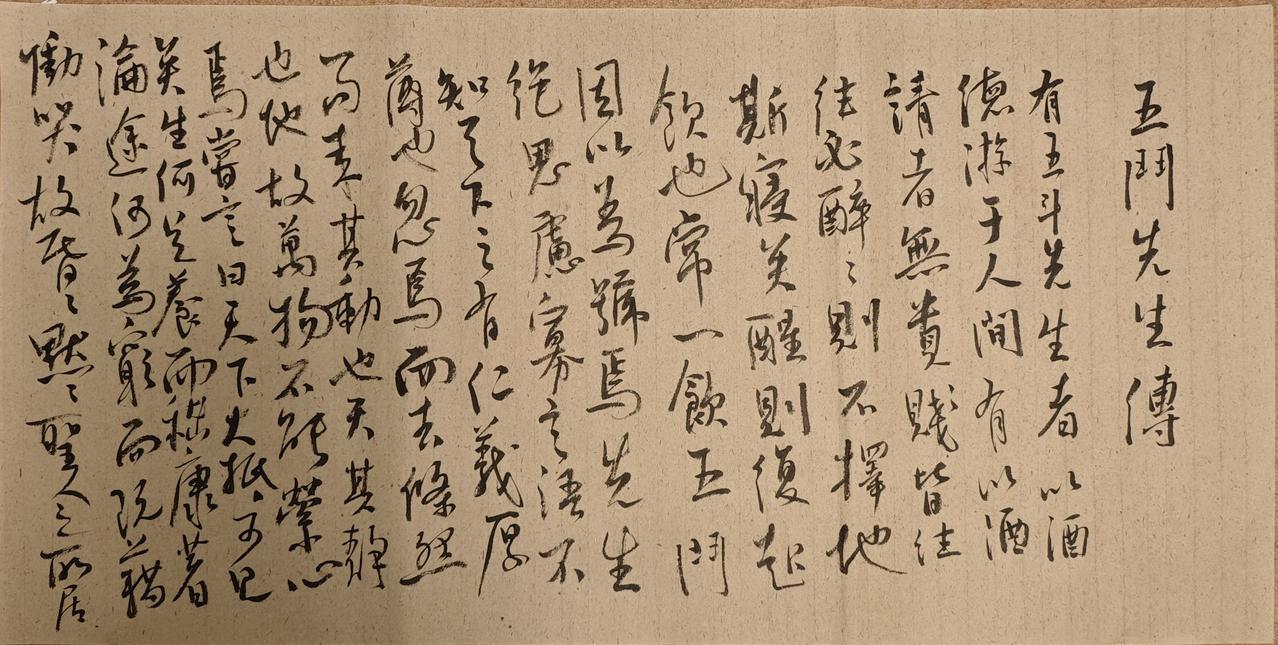 五鬥先生傳
有五斗先生者以酒
德游于人間有以酒
請者無貴賤皆往
往必醉々則不擇地
斯寢矣醒則復起
飲也常一飲五鬥
因以為號焉先生
絕思慮寡言語不
知天下之有仁義厚
薄也忽焉而去倏然
而來其動也天其靜
也地故萬物不能縈心
焉嘗言曰天下大抵可見
矣生何足養而嵇康著
論途何為窮而阮籍
慟哭故昏々默々聖人之所居